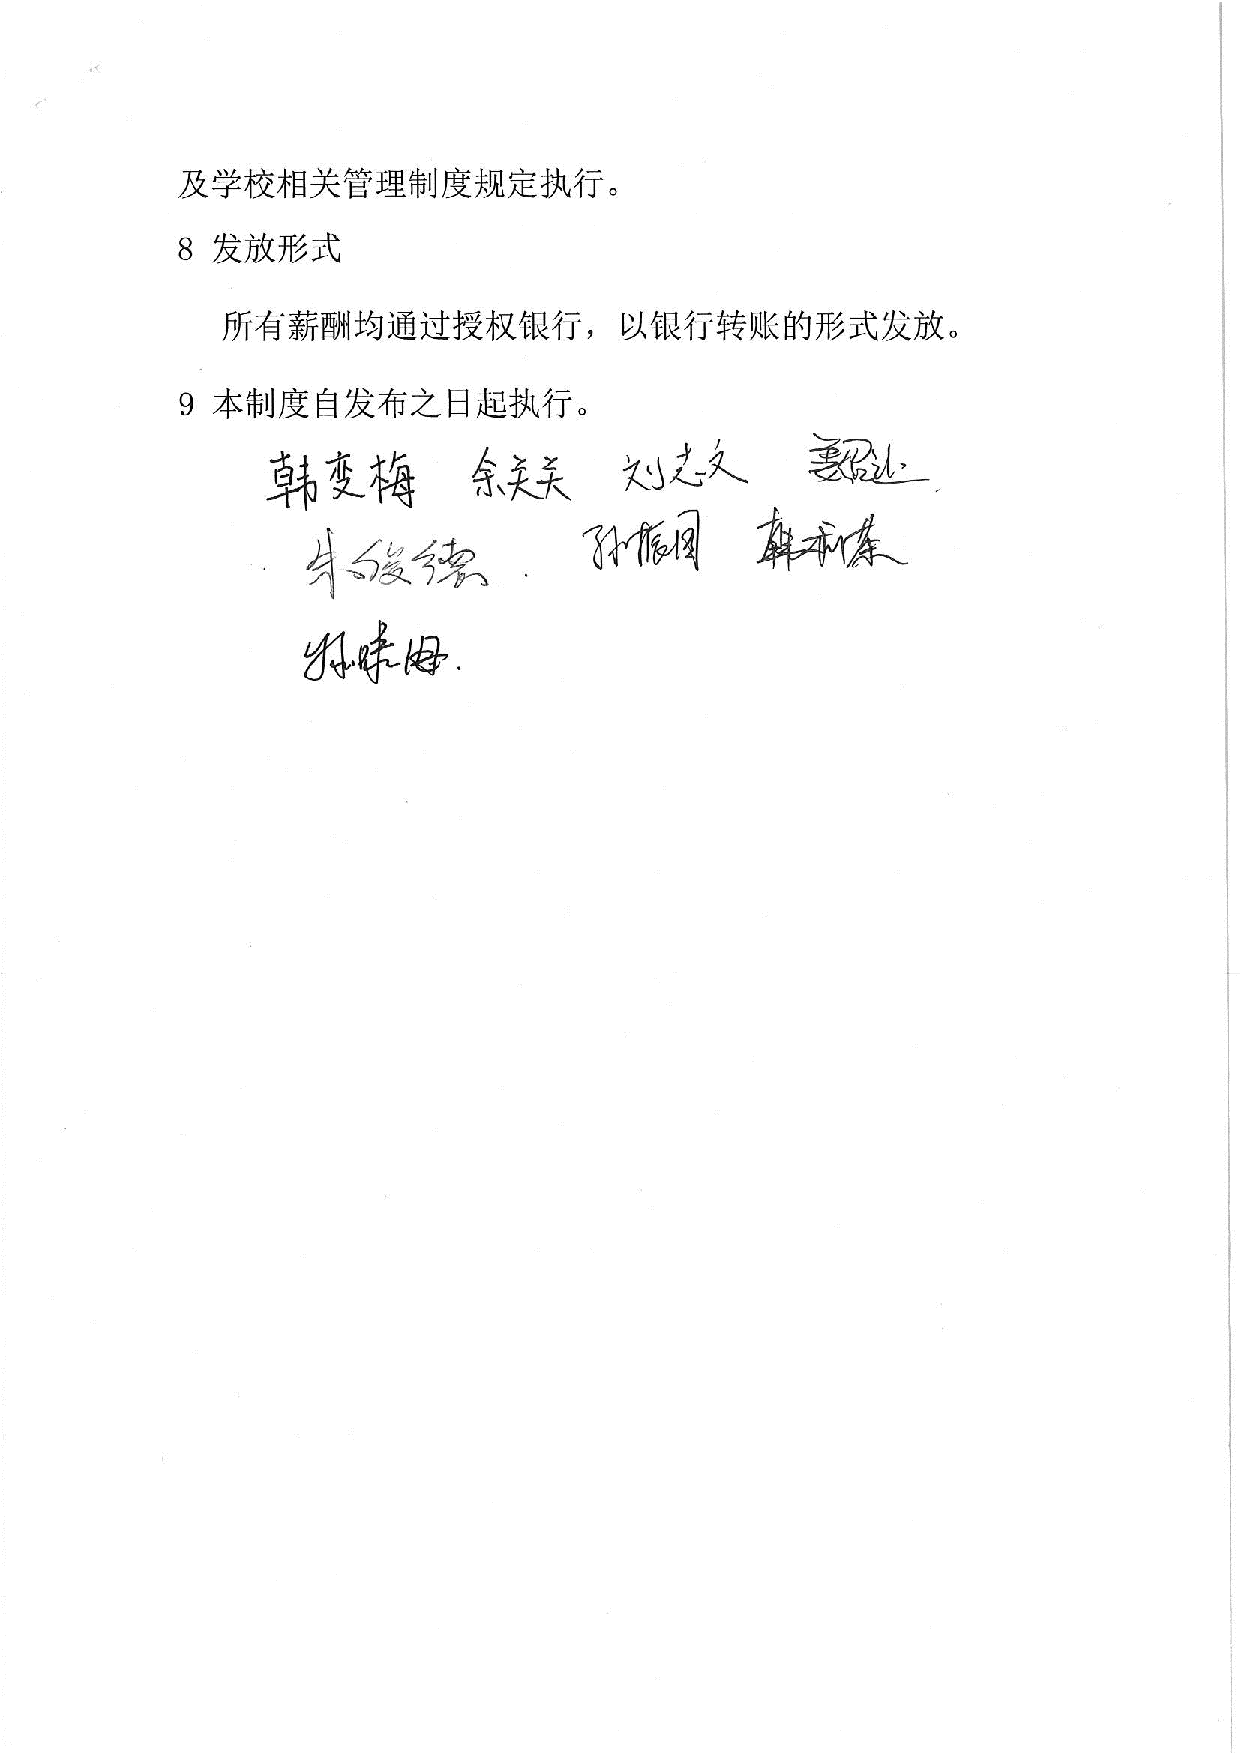 及学校相关管理制度规定执行。
8 发放形式
所有薪酬均通过授权银行，以银行转账的形式发放。
9 本制度自发布之日起执行。
韩变梅 余关关 刘志文
朱俊德 孙振国 韩利荣